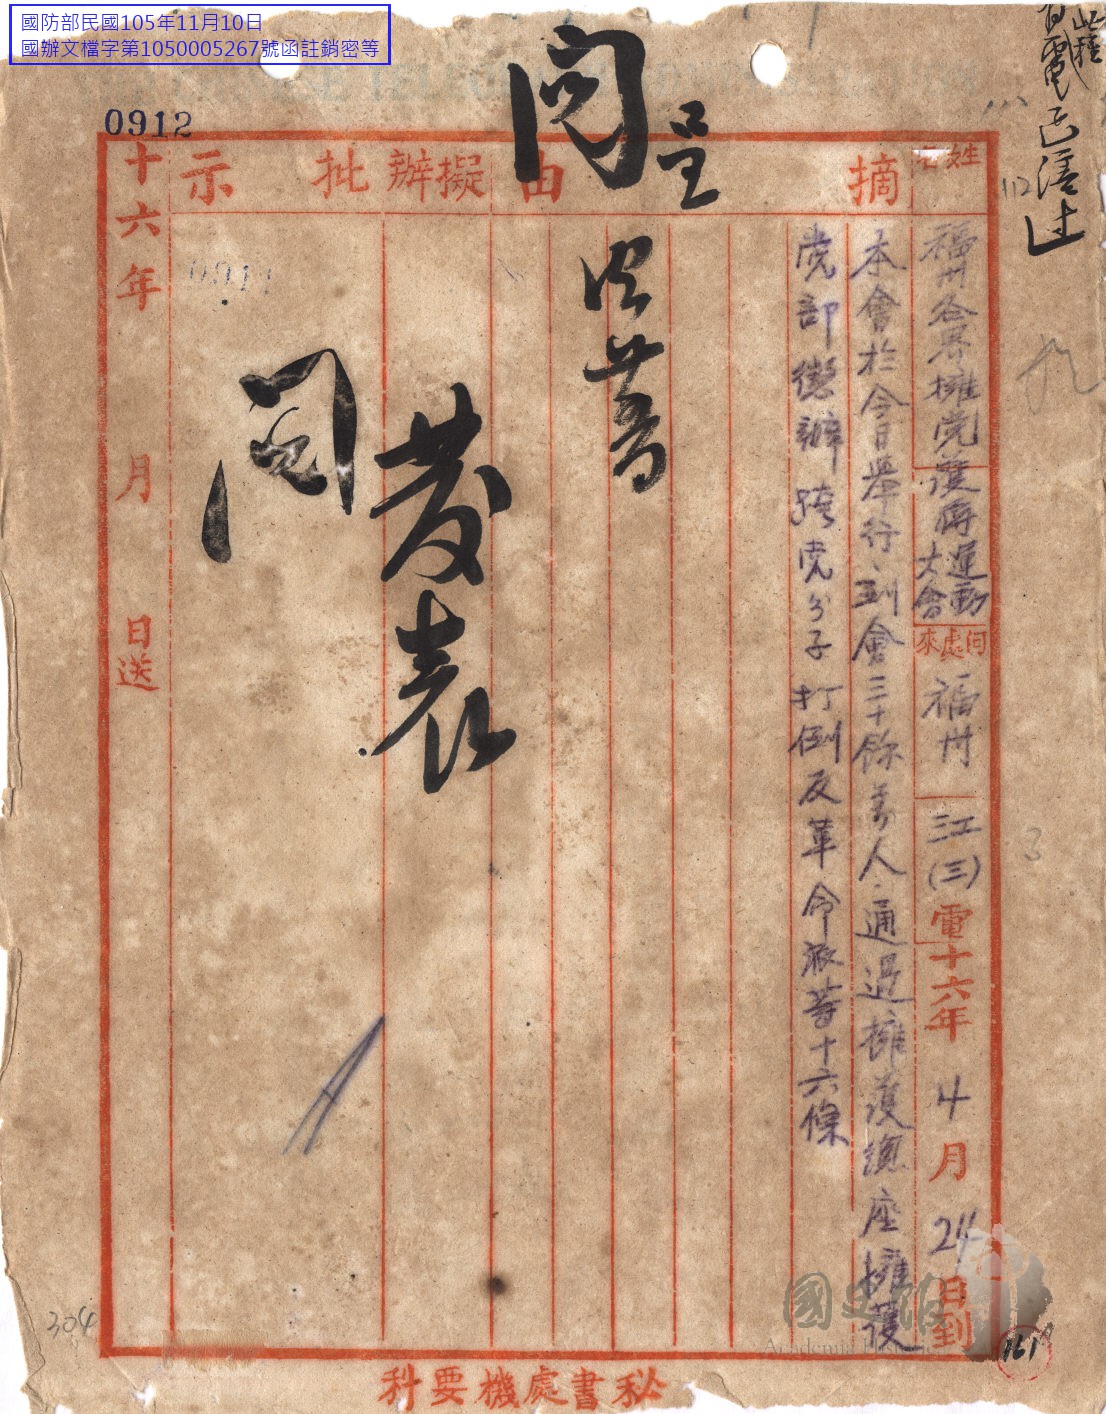 國防部民國105年11月10日
國辦文檔字第1050005267號函註銷密等
0912
姓名
福州各界擁党護蔣運動大會
何處來
福州
江(三)
電十六年4月24日到
摘由
本會於今日舉行、到會三十餘萬人、通過擁護總座擁護
党部懲辦跨党分子打倒反革命派等十六條
呈
閱
擬辦
批示
發表
閱
0911
十六年 月 日送
秘書處機要科
304
161
112
3
國史館
Academia Historica